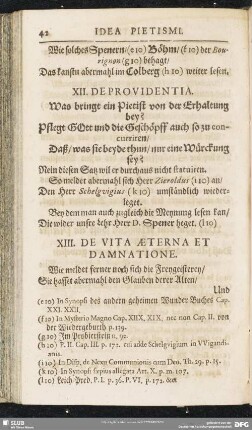 42 IDEA PIETISMI.
Wie solches Spenern/(e 10) Böhm/(f 10) der Bou-
rignon (g 10) behagt/
Das kanstu abermahl im Colberg (h 10) weiter lesen.
XII. DE PROVIDENTIA.
Was bringt ein Pietist von der Erhaltung
bey?
Pflegt GOtt und die Geschöpff auch so zu con-
curriren/
Daß/ was sie beyde thun/ nur eine Würckung
sey?
Nein diesen Satz wil er durchaus nicht statuiren.
So meldet abermahl sich Herr Zieroldus (i 10) an/
Den Herr Schelgvigius (k 10) umständlich wieder-
leget.
Bey dem man auch zugleich die Meynung lesen kan/
Die wider unsre Lehr Herr D. Spener heget. (l 10)
XIII. DE VITA ÆTERNA ET
DAMNATIONE.
Wie meldet ferner noch sich die Irregeister
Sie hasset abermahl den Glauben derer Alten/
Und
(e 10) In Synopsi des andern geheimen Wunder Buches Cap.
XXI. XXII.
(f 10) In Mysterio Magno Cap. XIIX, XIX, nec non Cap. II. von
der Wiedergeburth p. 139.
(g 10) Im Probierstein n. 92.
(h 10) P. II. Cap. III. p. 172. cui adde Schelgvigium in VVigandi-
anis.
(i 10) In Disp. de Nexu Communionis cum Deo. Th. 29. p. 15.
(k 10) In Synopsi sepius allegata Art. X. p. m. 107.
(l 10) Leich-Pred. P. I. p. 36. P. VI, p. 172.
SLUB